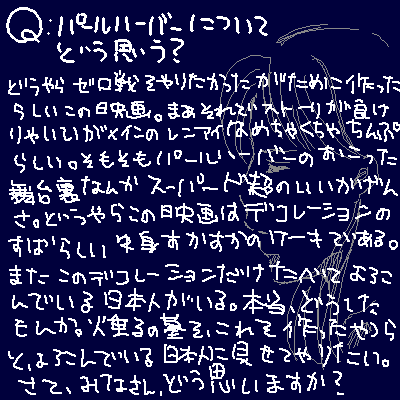 Q:パールハーバーについて
どう思う?
どうやら ゼロ戦をやりたかったがために作った
らしいこの映画。まあそれでストーリが良け
りゃいいがメインのレンアイはめちゃくちゃちんぷ
らしい。そもそもパールハーバーのおこった
舞台裏なんか スーパード超のいいかげん
さ。どうやらこの映画はデコレーションの
すばらしい 中身すかすかのケーキである。
またこのデコレーションだけたべてよろこ
んでいる日本人がいる。本当、どうした
もんか。火垂るの墓を、これを作ったやつら
と、よろこんでいる日本人に見せてやりたい。
さて、みなさん、どう思いますか?